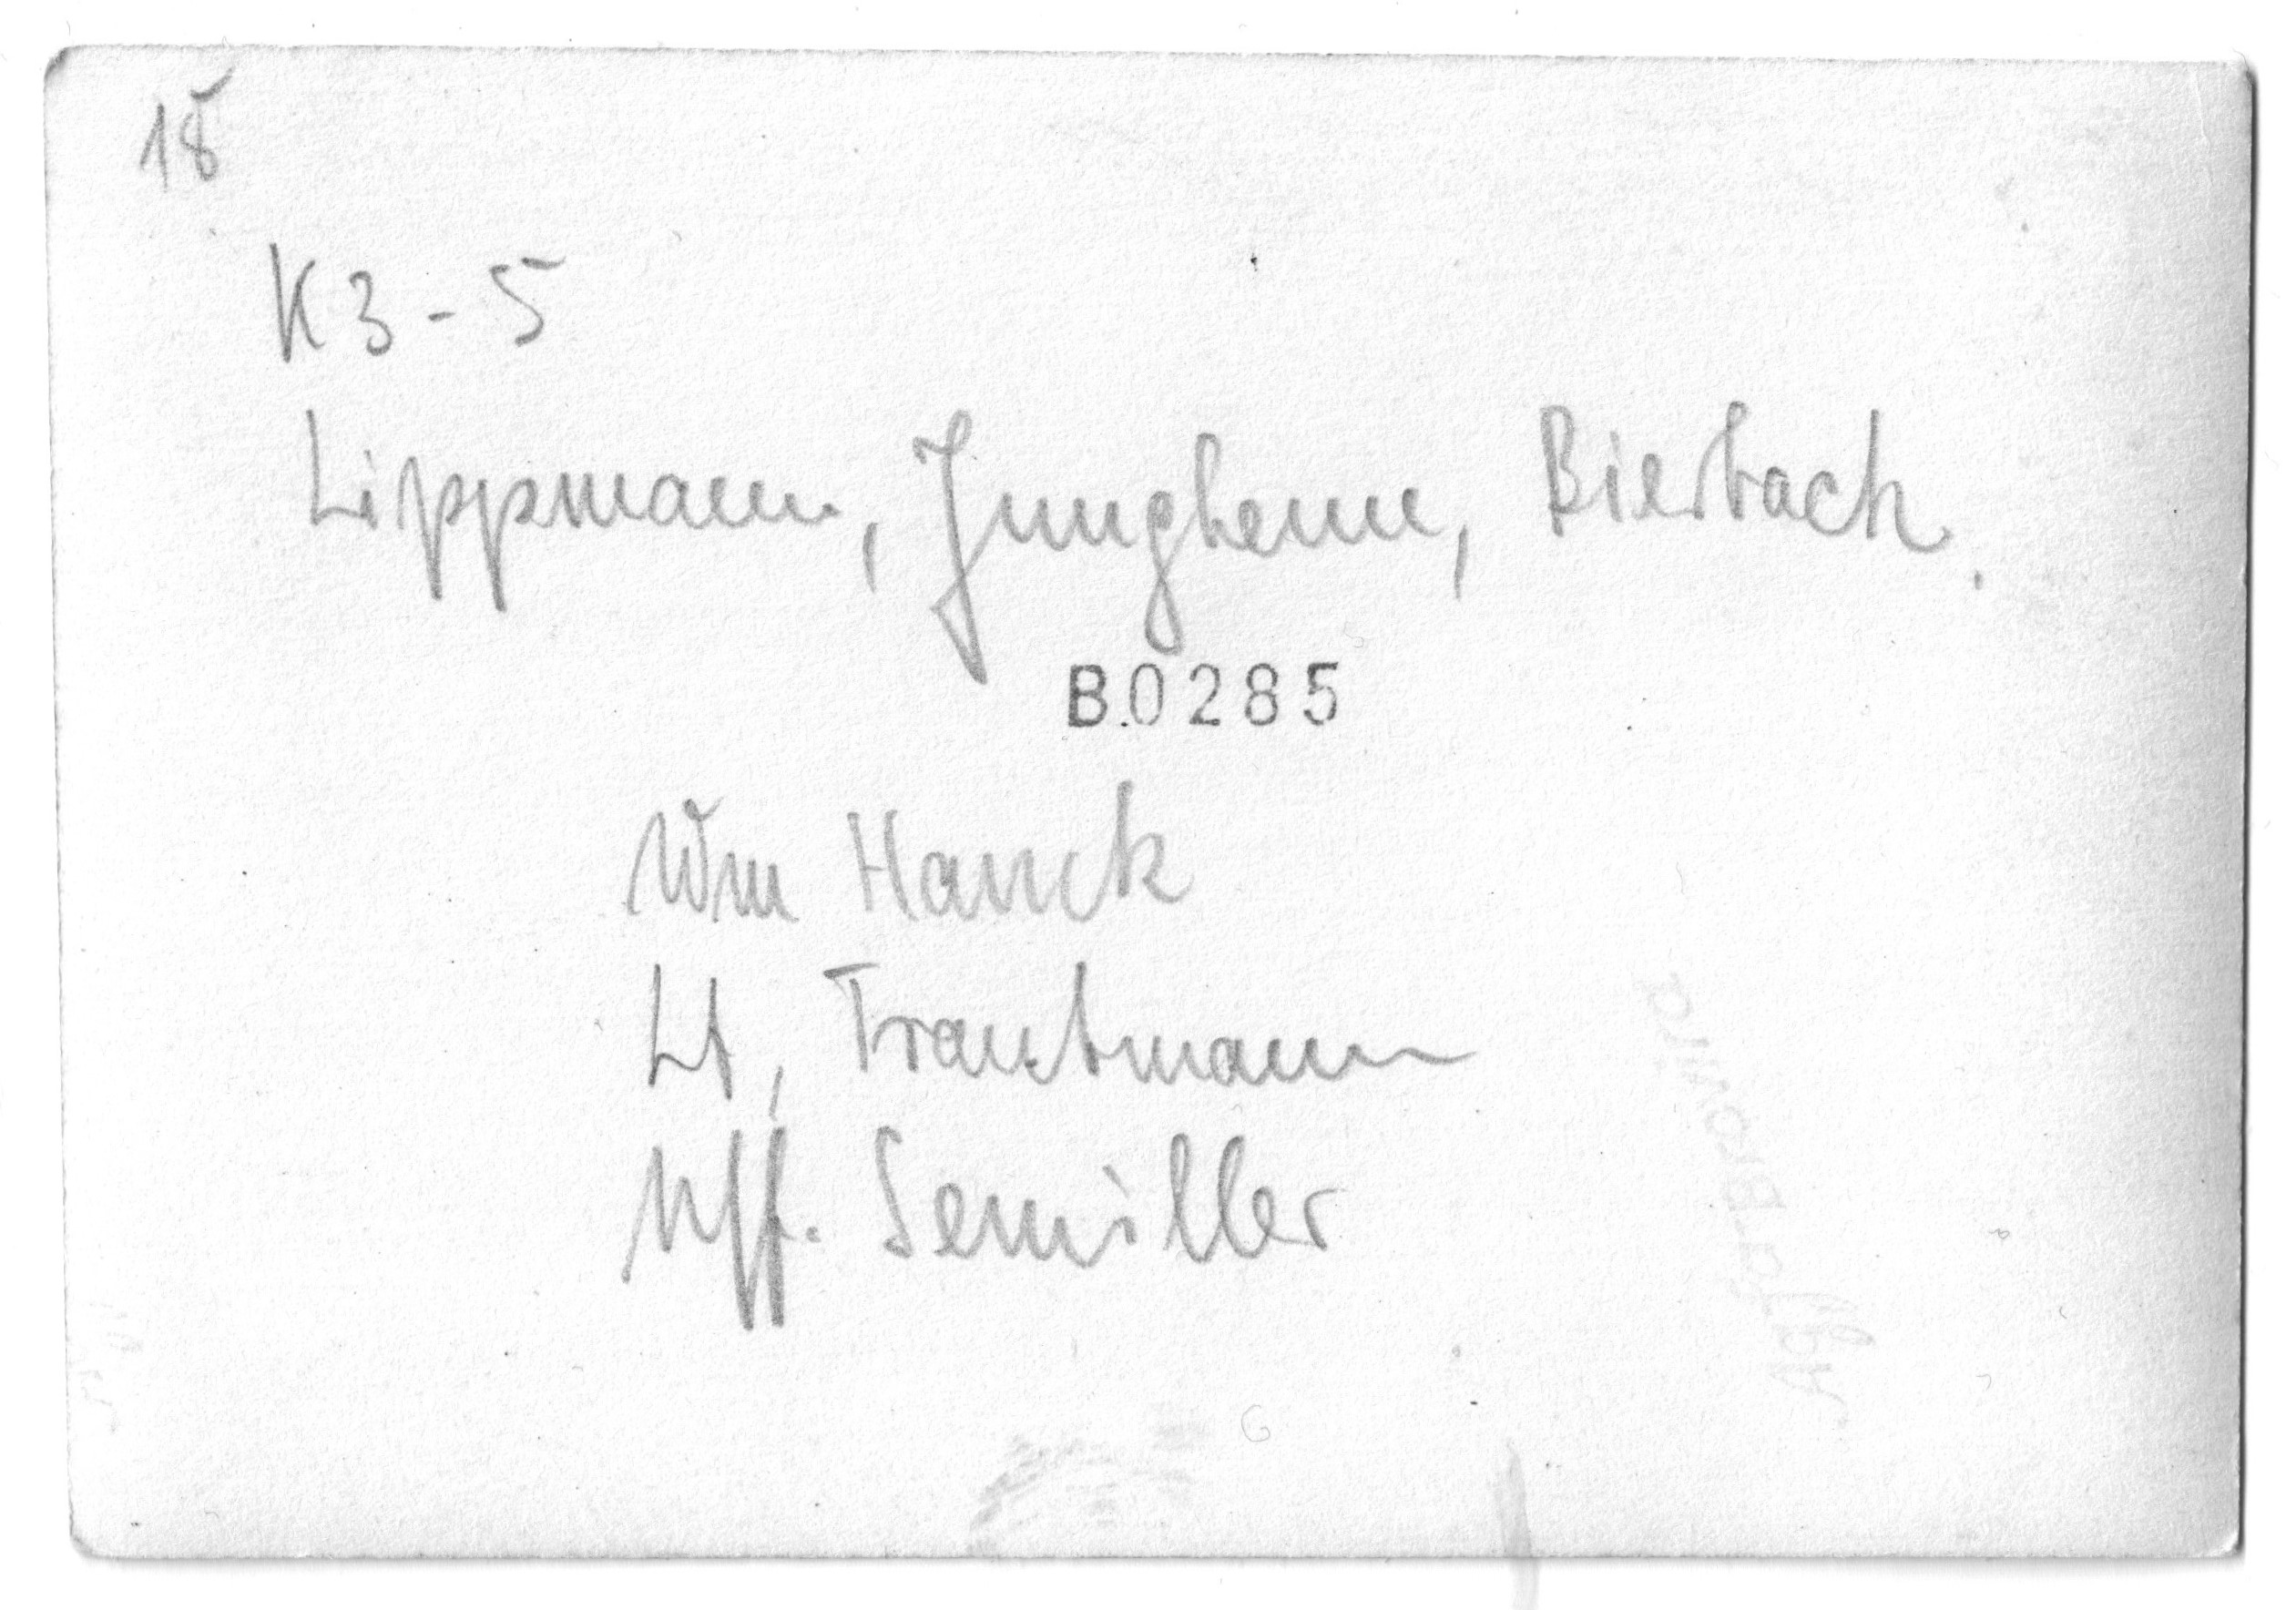 18
K 3 - 5
Lippmann, Junghenn, Bierbach.
B.0285
Wm Hanck
Lt, Trautmann
Uff. Semiller